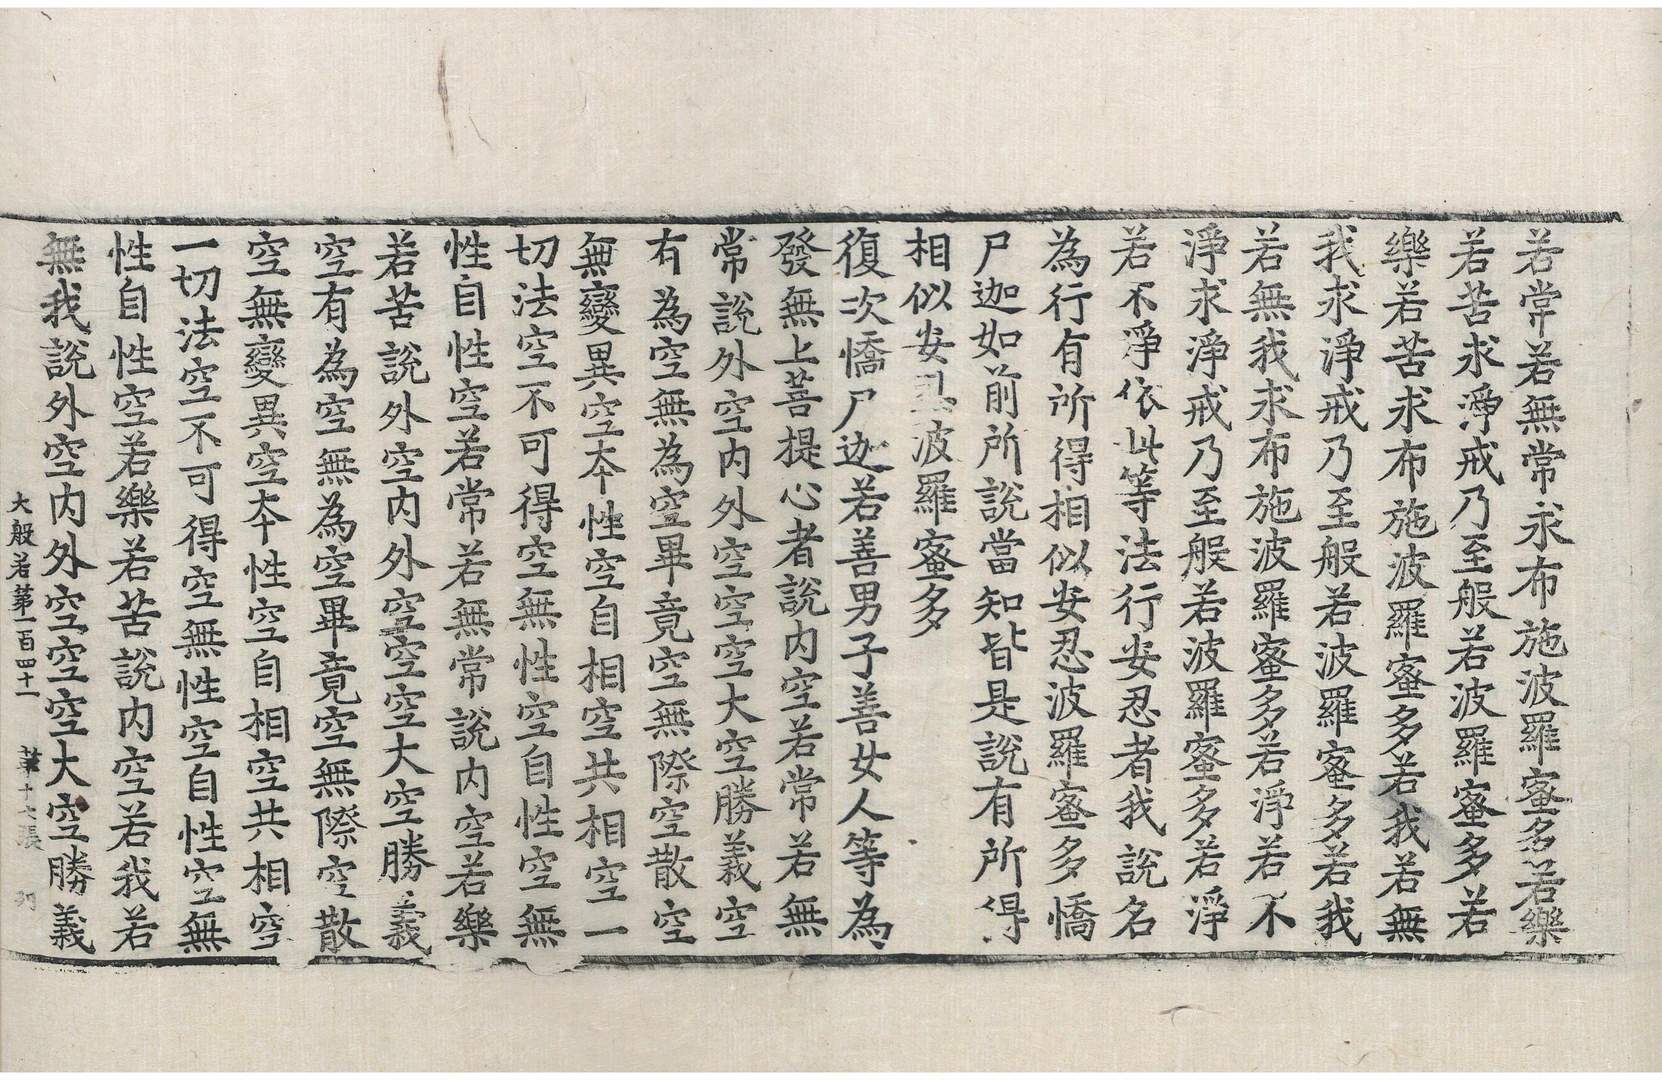 若常若無常求布施波羅蜜多若樂
若苦求淨戒乃至般若波羅蜜多若
樂若苦求布施波羅蜜多若我若無
我求淨戒乃至般若波羅蜜多若我
若無我求布施波羅蜜多若淨若不
淨求淨戒乃至般若波羅蜜多若淨
若不淨依此等法行安忍者我說名
為行有所得相似安忍波羅蜜多憍
尸迦如前所說當知皆是說有所得
相似安忍波羅蜜多
復次憍尸迦若善男子善女人等為
發無上菩提心者說内空若常若無
常說外空内外空空空大空勝義空
有為空無為空畢竟空無際空散空
無變異空夲性空自相空共相空一
切法空不可得空無性空自性空無
性自性空若常若無常說内空若樂
若苦說外空内外空空空大空勝義
空有為空無為空畢竟空無際空散
空無變異空夲性空自相空共相空
一切法空不可得空無性空自性空無
性自性空若樂若苦說内空若我若
無我說外空内外空空空大空勝義
大般若第一百四十一 第十六張 列